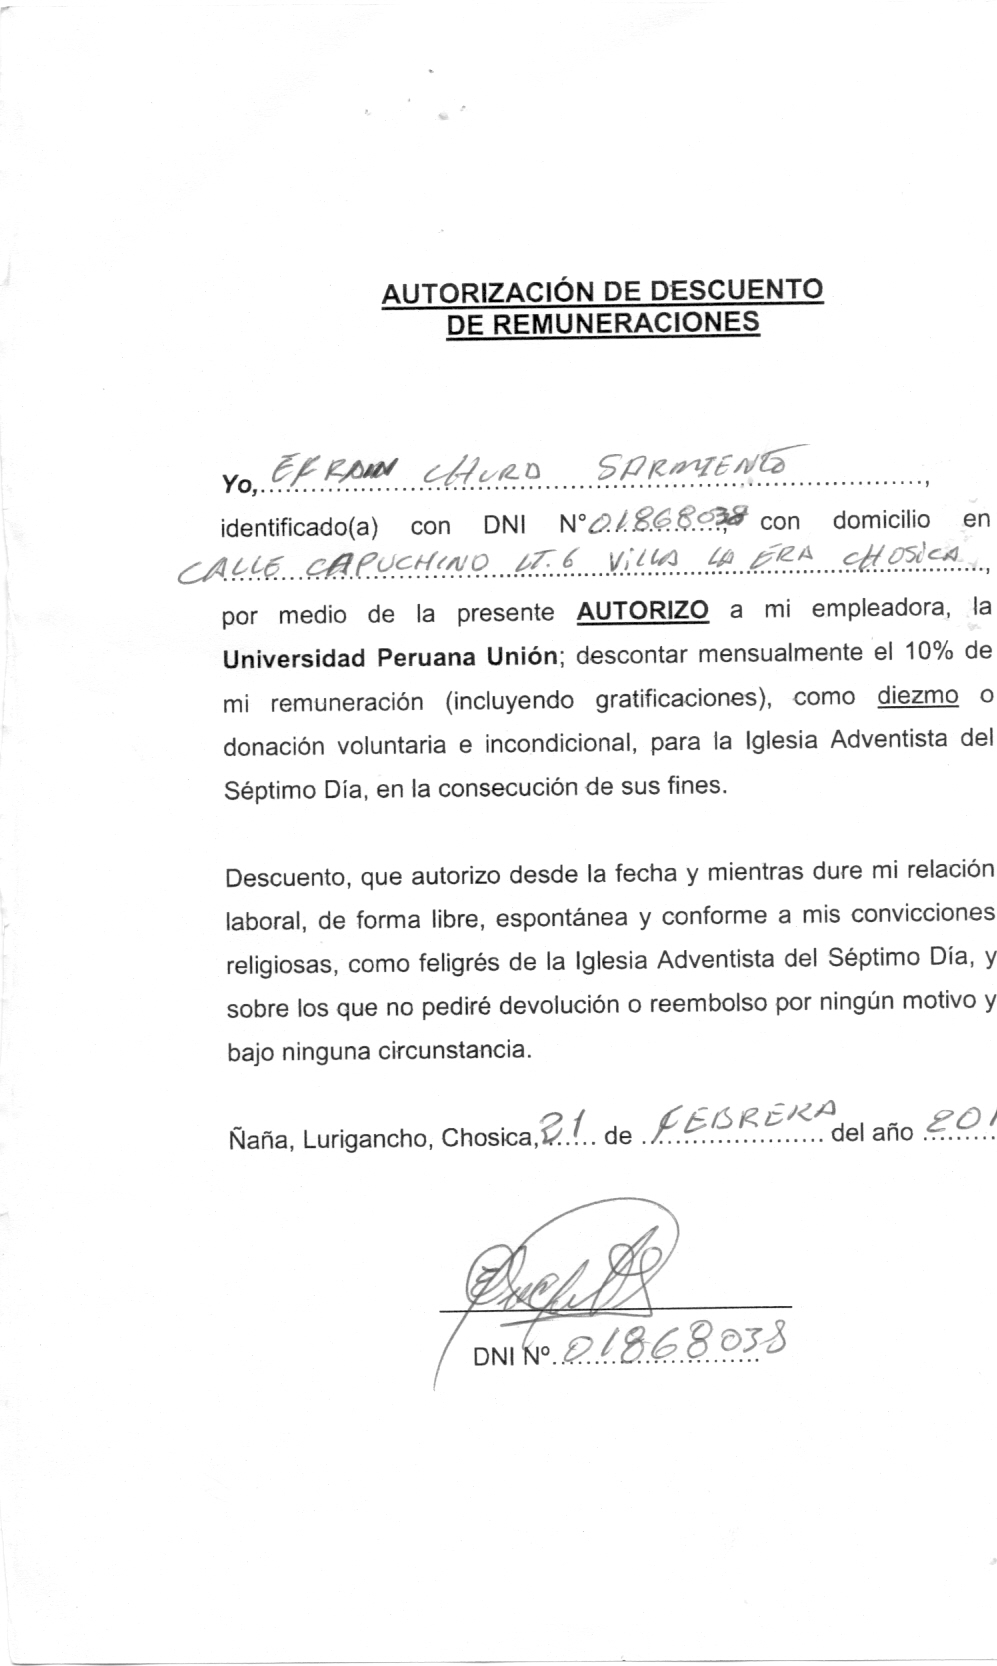 AUTORIZACIÓN DE DESCUENTO
DE REMUNERACIONES
Yo, EFRAIN CHURO SARMIENTO,
identificado(a) con DNI N° 01868038 con domicilio en
CALLE CAPUCHINO LT. 6 VILLA LA ERA CHOSICA,
por medio de la presente AUTORIZO a mi empleadora, la
Universidad Peruana Unión; descontar mensualmente el 10% de
mi remuneración (incluyendo gratificaciones), como diezmo o
donación voluntaria e incondicional, para la Iglesia Adventista del
Séptimo Día, en la consecución de sus fines.
Descuento, que autorizo desde la fecha y mientras dure mi relación
laboral, de forma libre, espontánea y conforme a mis convicciones
religiosas, como feligrés de la Iglesia Adventista del Séptimo Día, y
sobre los que no pediré devolución o reembolso por ningún motivo y
bajo ninguna circunstancia.
Ñaña, Lurigancho, Chosica, 21 de FEBRERA del año 201
DNI Nº 01868038